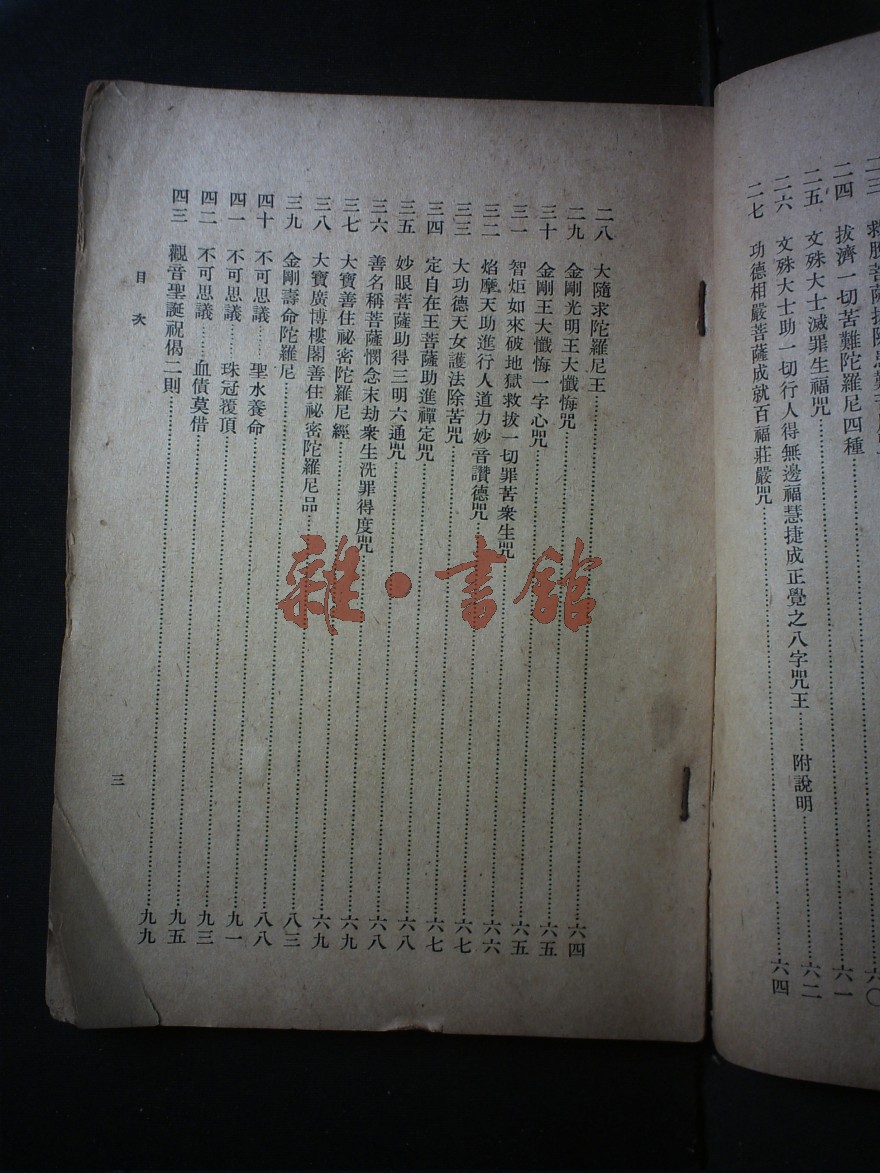 二四 拔濟一切苦難陀羅尼四種 六一
二五 文殊大士滅罪生福咒 六二
二六 文殊大士助一切行人得無邊福慧捷成正覺之八字咒王……附說明 六四
二七 功德相嚴菩薩成就百福莊嚴咒
二八 大隨求陀羅尼王 六四
二九 金剛光明王大懺悔咒 六五
三十 金剛王大懺悔一字心咒 六五
三一 智炬如來破地獄救拔一切罪苦衆生咒 六六
三二 焰摩天助進行人道力妙音讚德咒 六七
三三 大功德天女護法除苦咒 六七
三四 定自在王菩薩助進禪定咒 六八
三五 妙眼菩薩助得三明六通咒 六八
三六 善名稱菩薩憫念末劫衆生洗罪得度咒 六九
三七 大寶善住祕密陀羅尼經 六九
三八 大寶廣博樓閣善住祕密陀羅尼品 八三
三九 金剛壽命陀羅尼 八八
四十 不可思議……聖水養命 九一
四一 不可思議……珠冠覆頂 九三
四二 不可思議……血債莫借 九五
四三 觀音聖誕祝偈二則 九九
目次
三
雜·書館